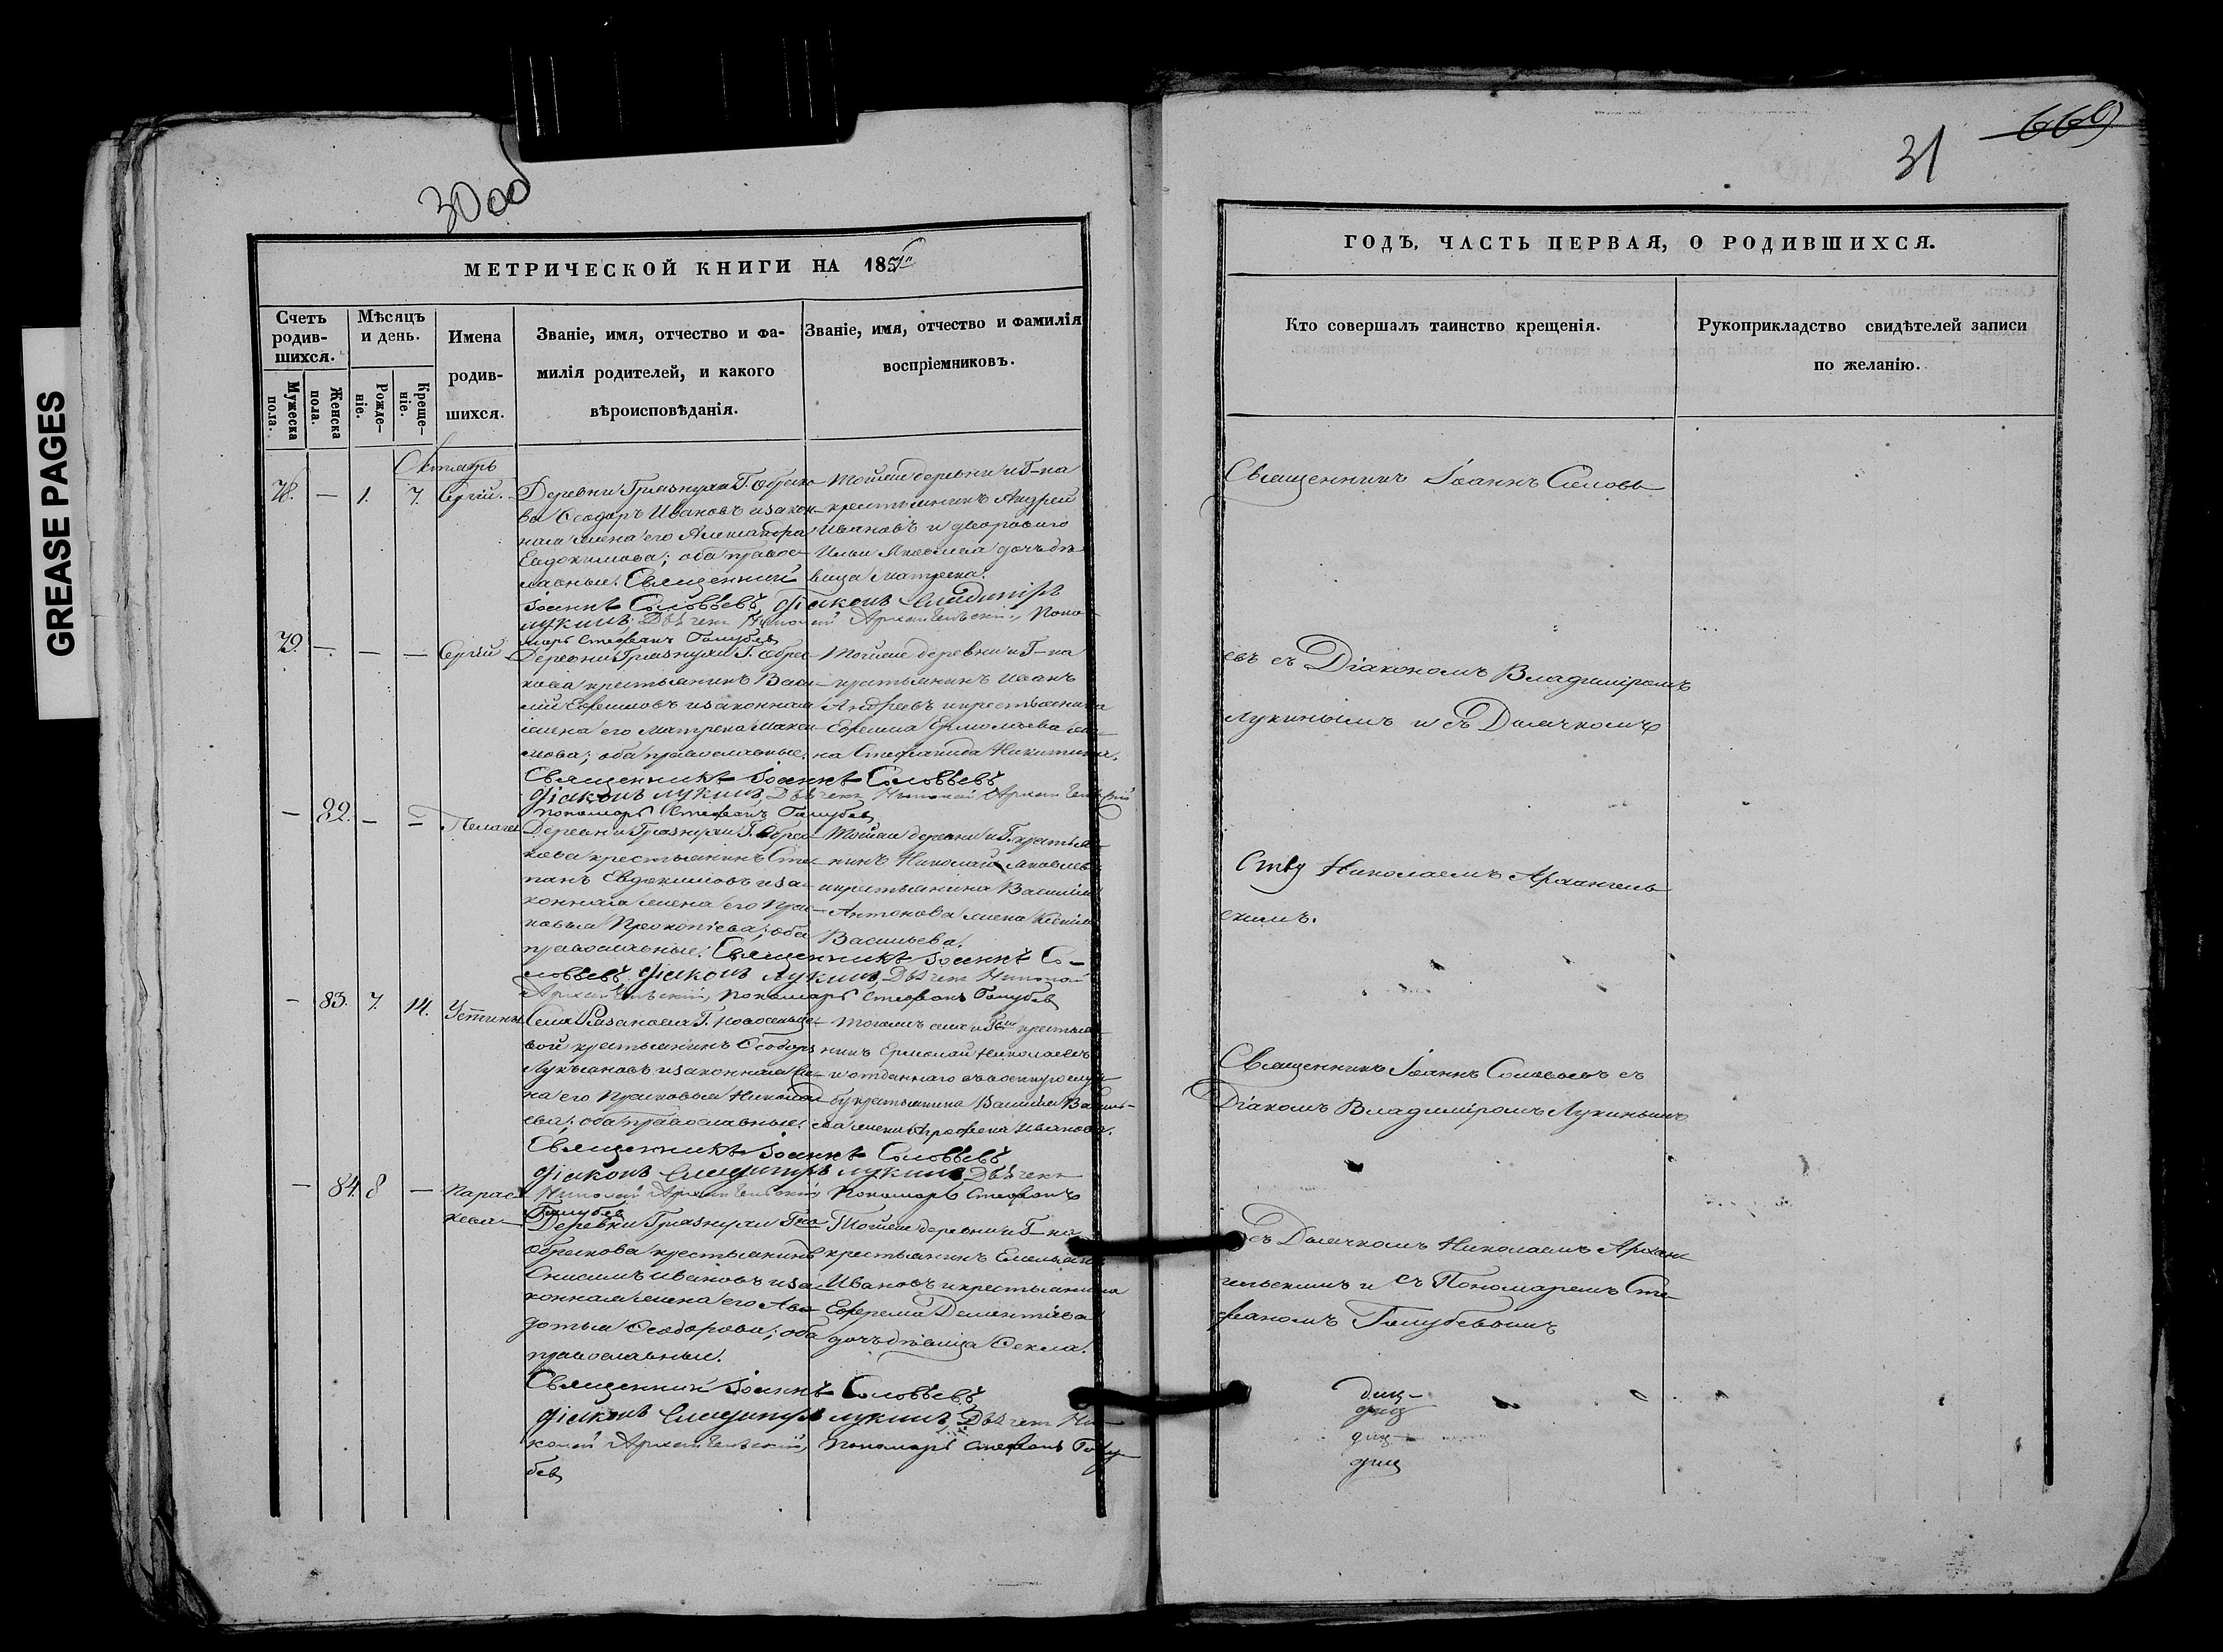 GREASE PAGES
3000
МЕТРИЧЕСКОЙ КНИГИ НА 185
Счетъ родив-шихся.
Мѣсяцъ и день.
Имена родив-шихся.
Званіе, имя, отчество и фа-
милія родителей, и какого
вѣроисповѣданія.
Званіе, имя, отчество и фамилія
воспріемниковъ.
Мужеска пола.
Женска пола.
Рожде-ніе.
Креще-ніе.
Октябрь
78. — 1. 7. Сергій.
Деревни Грязнухи Г. Обреско-
ва Ѳеодоръ Ивановъ и закон-
ная жена его Александра
Евдокимова; оба правос-
лавные. Священникъ
Іоаннъ Соловьевъ, Діаконъ Владиміръ
Лукинъ, Дьячекъ Николай Архангельскій, Поно-
марь Стефанъ Голубев
Тойже деревни и Г-на
крестьянинъ Андрей
Ивановъ и двороваго
дочь дѣ-
вица Матрена.
79. — — — Сергій
Деревни Грязнухи Г. Обрес-
кова крестьянинъ Васи-
лій Ефимовъ и законная
жена его Матрена Макси-
мова; оба православные.
Священникъ Іоаннъ Соловьевъ
Діаконъ Лукинъ, Дьячекъ Николай Архангельскій
Пономарь Стефанъ Голубев
Тойже деревни и Г-на
крестьянинъ Иванъ
Андреевъ и крестьянина
Ермолаева же-
на Стефанида Никитина.
— 82. — — Пелагея
Деревни Грязнухи Г. Обрес-
кова крестьянинъ Сте-
панъ Евдокимовъ и за-
конная жена его Прас-
ковья Прокопіева; оба
православные. Священникъ Іоаннъ Со-
ловьевъ, Діаконъ Лукинъ, Дьячекъ Николай
Архангельскій, Пономарь Стефанъ Голубев
Тойже деревни и Г. крестья-
нинъ Николай Яковлевъ
и крестьянина Василія
Антонова жена Ксенія
Васильева.
— 83. 7. 14. Устинья
Села Рязановки Г. Новосельце-
вой крестьянинъ Ѳеодоръ
Лукьяновъ и законная же-
на его Прасковья Николае-
ва; оба православные.
Священникъ Іоаннъ Соловьевъ
Діаконъ Владиміръ Лукинъ, Дьячекъ
Николай Архангельскій Пономарь Стефанъ
Голубев
Тогожъ села и Г-жи крестья-
нинъ Ермолай Николаевъ
и отданнаго въ военную служ-
бу крестьянина Василія Василь-
ева жена Агрофена Иванова.
— 84. 8 — Парас-
кева
Деревни Грязнухи Г-на
Обрескова крестьянинъ
Ивановъ и за-
конная жена его Ав-
дотья Ѳеодорова; оба
православные.
Священникъ Іоаннъ Соловьевъ
Діаконъ Владиміръ Лукинъ, Дьячекъ Ни-
колай Архангельскій, Пономарь Стефанъ Голу-
бев
Тойже деревни и Г-на
крестьянинъ Емельянъ
Ивановъ и крестьянина
Ефрема Дементіева
дочь дѣвица Ѳекла.
669
31
ГОДЪ, ЧАСТЬ ПЕРВАЯ, О РОДИВШИХСЯ.
Кто совершалъ таинство крещенія.
Рукоприкладство свидѣтелей записи
по желанію.
Священникъ Іоаннъ Соловь-
евъ съ Діакономъ Владиміромъ
Лукинымъ и съ Дьячкомъ
Николаемъ Архангель-
скимъ.
Священникъ Іоаннъ Соловьевъ съ
Діакомъ Владиміромъ Лукинымъ
съ Дьячкомъ Николаемъ Архан-
гельскимъ и съ Пономаремъ Сте-
фаномъ Голубевымъ